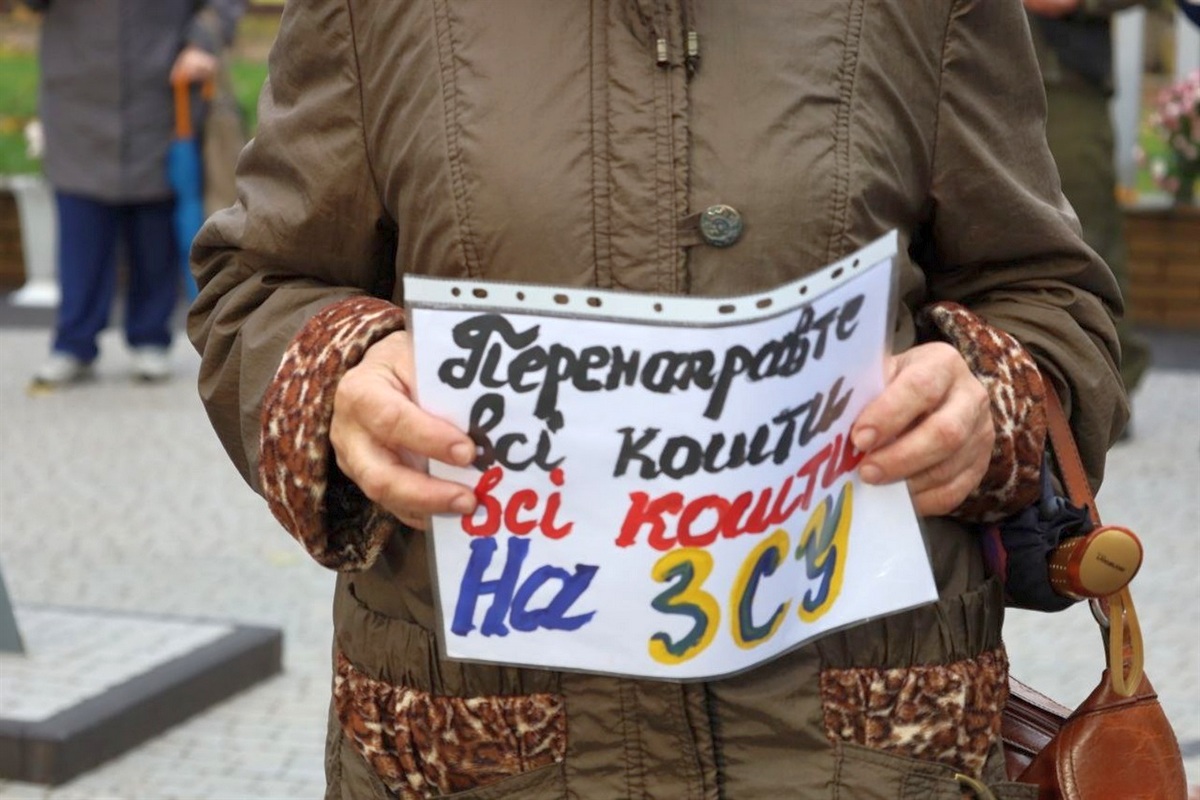 Перенаправте
всі кошти
всі кошти
На ЗСУ